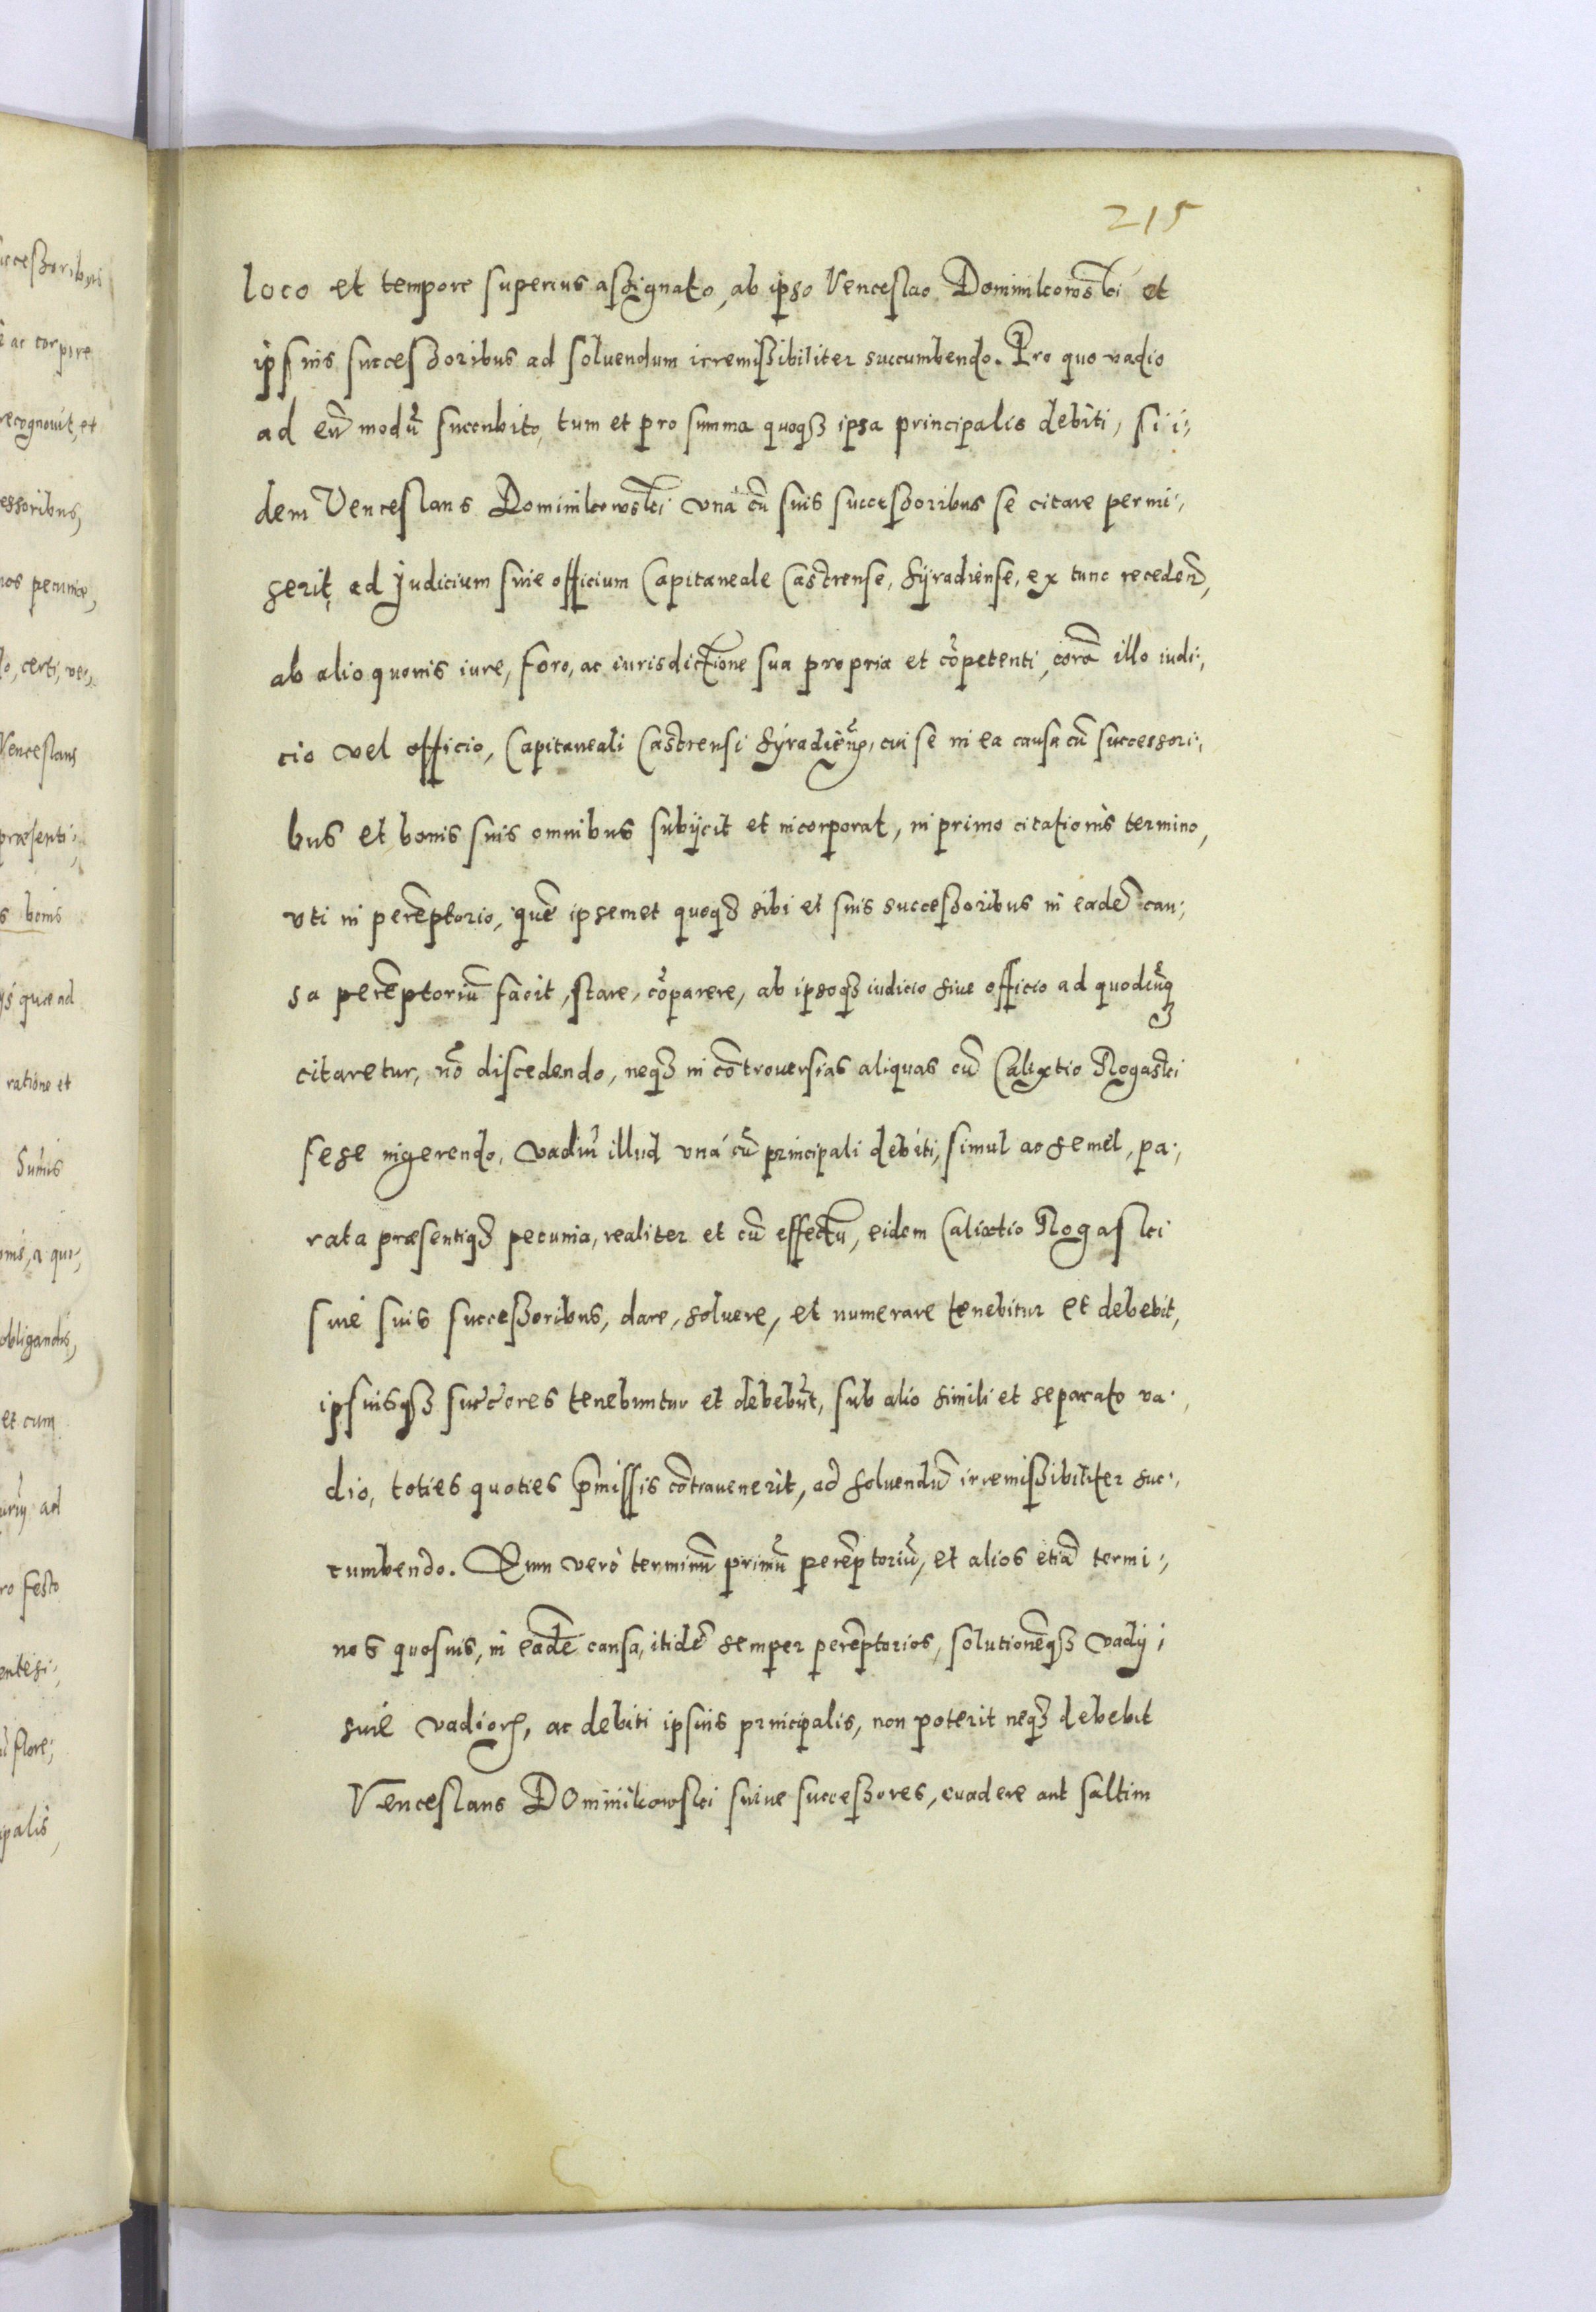 215
loco et tempore superius aßignato, ab ipso Venceslao Dominikowski et
ipsius succeßoribus ad soluendum irremißibiliter succumbendo. Pro quo vadio
ad eũ modũ succubito, tum et pro summa quoqȝ ipsa principalis debiti, si i;
dem Venceslaus Dominikowski vnà cũ suis succeßoribus se citare permi;
serit, ad Judicium siue officium Capitaneale Castrense, Syradiense, ex tunc recedeñ,
ab alio quouis iure, foro, ac iurisdictione sua propria et cõpetenti, corã illo iudi;
cio vel officio, Capitaneali Castrensi Syradieñ, cui se in ea causa cũ successori;
bus et bonis suis omnibus subijcit et incorporat, in primo citationis termino,
vti in perẽptorio, quẽ ipsemet quoqȝ sibi et suis succeßoribus in eadẽ cau;
sa perẽptoriũ facit, stare, cõparere, ab ipsoqȝ iudicio siue officio ad quod
citaretur, nõ discedendo, neqȝ in cõtrouersias aliquas cũ Calixtio Rogaski
sese ingerendo, vadiũ illud vnà cũ principali debiti, simul ac semel, pa;
rata præsentiqȝ pecunia, realiter et cũ effectu, eidem Calixtio Rogaski
siue suis succeßoribus, dare, soluere, et numerare tenebitur et debebit,
ipsiusqȝ succ̃ores tenebuntur et debebũt, sub alio simili et separato va;
dio, toties quoties p̃missis cõtrauenerit, ad soluendũ irremißibiliter suc;
cumbendo. Eum verò terminũ primũ perẽptoriũ, et alios etiã termi;
nos quosuis, in eadẽ causa, itidẽ semper perẽptorios, solutionẽqȝ vadij;
siue vadioꝝ, ac debiti ipsius principalis, non poterit neqȝ debebit
Venceslaus Dominikowski suiue succeßores, euadere aut saltim